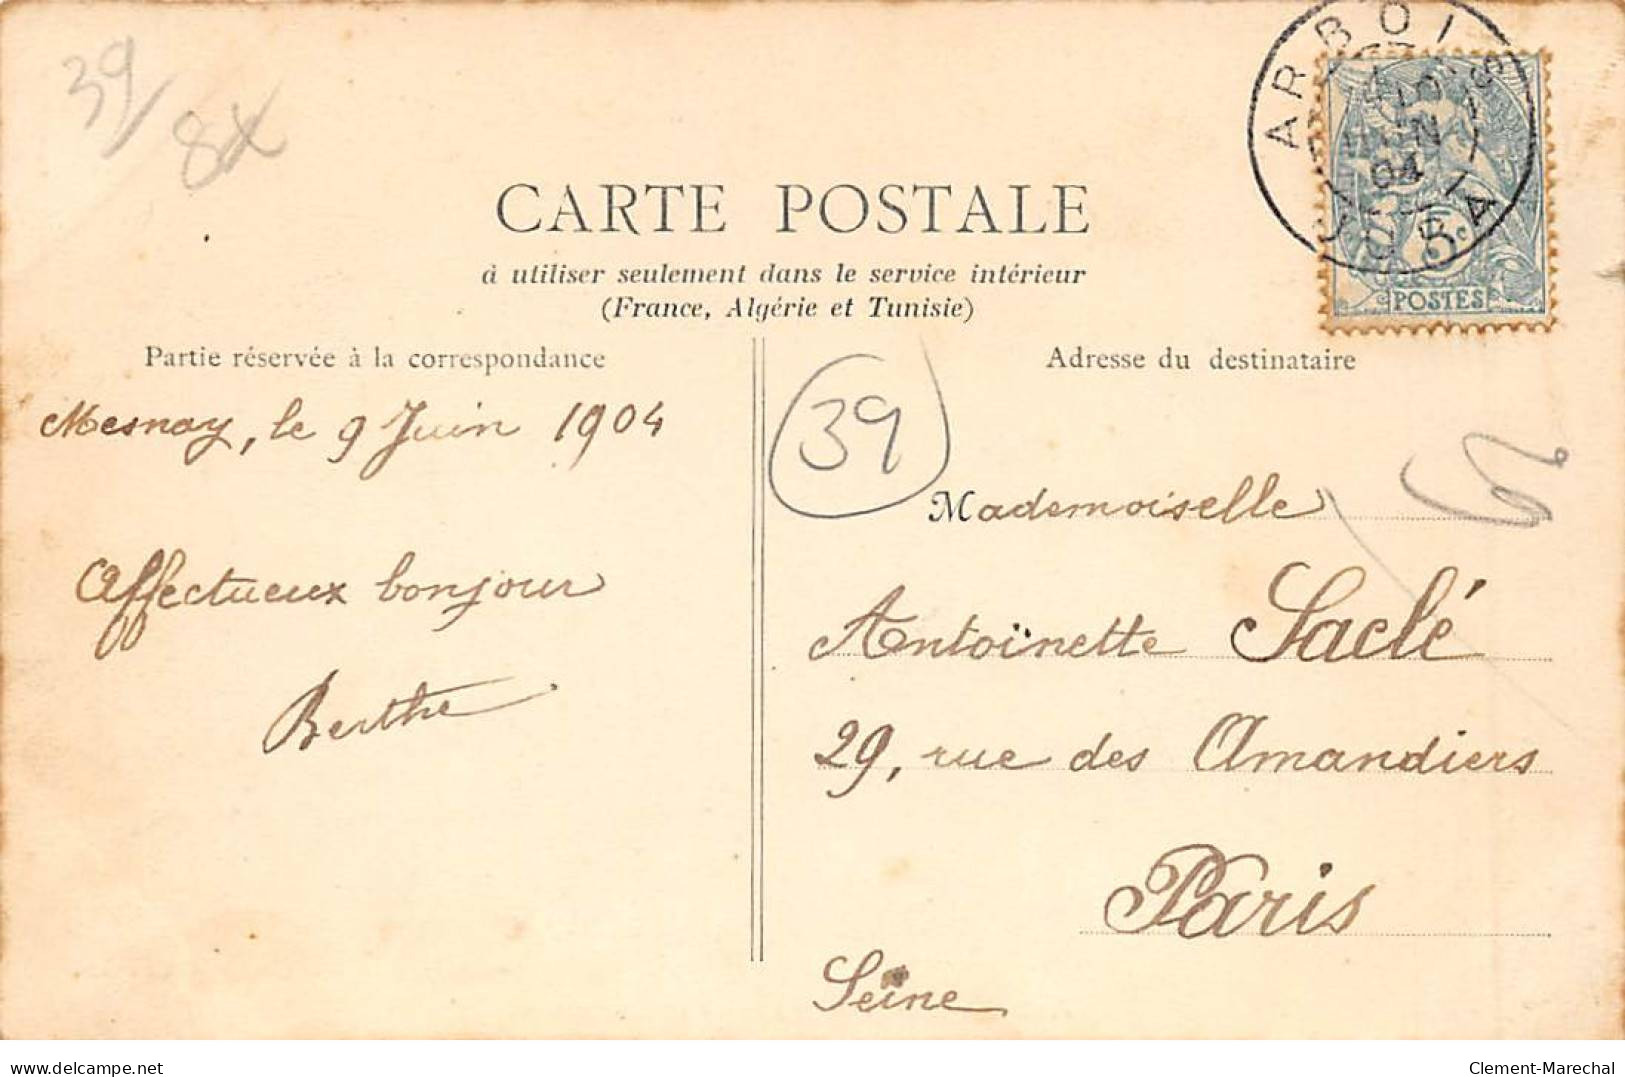 39
8x
ARBOIS
04
JURA
5c
POSTES
CARTE POSTALE
à utiliser seulement dans le service intérieur
(France, Algérie et Tunisie)
Partie réservée à la correspondance
Mesnay, le 9 Juin 1904
Affectueux bonjour
Berthe
Adresse du destinataire
39
Mademoiselle
Antoïnette Saclé
29, rue des Amandiers
Paris
Seine
www.delcampe.net
Clement-Marechal